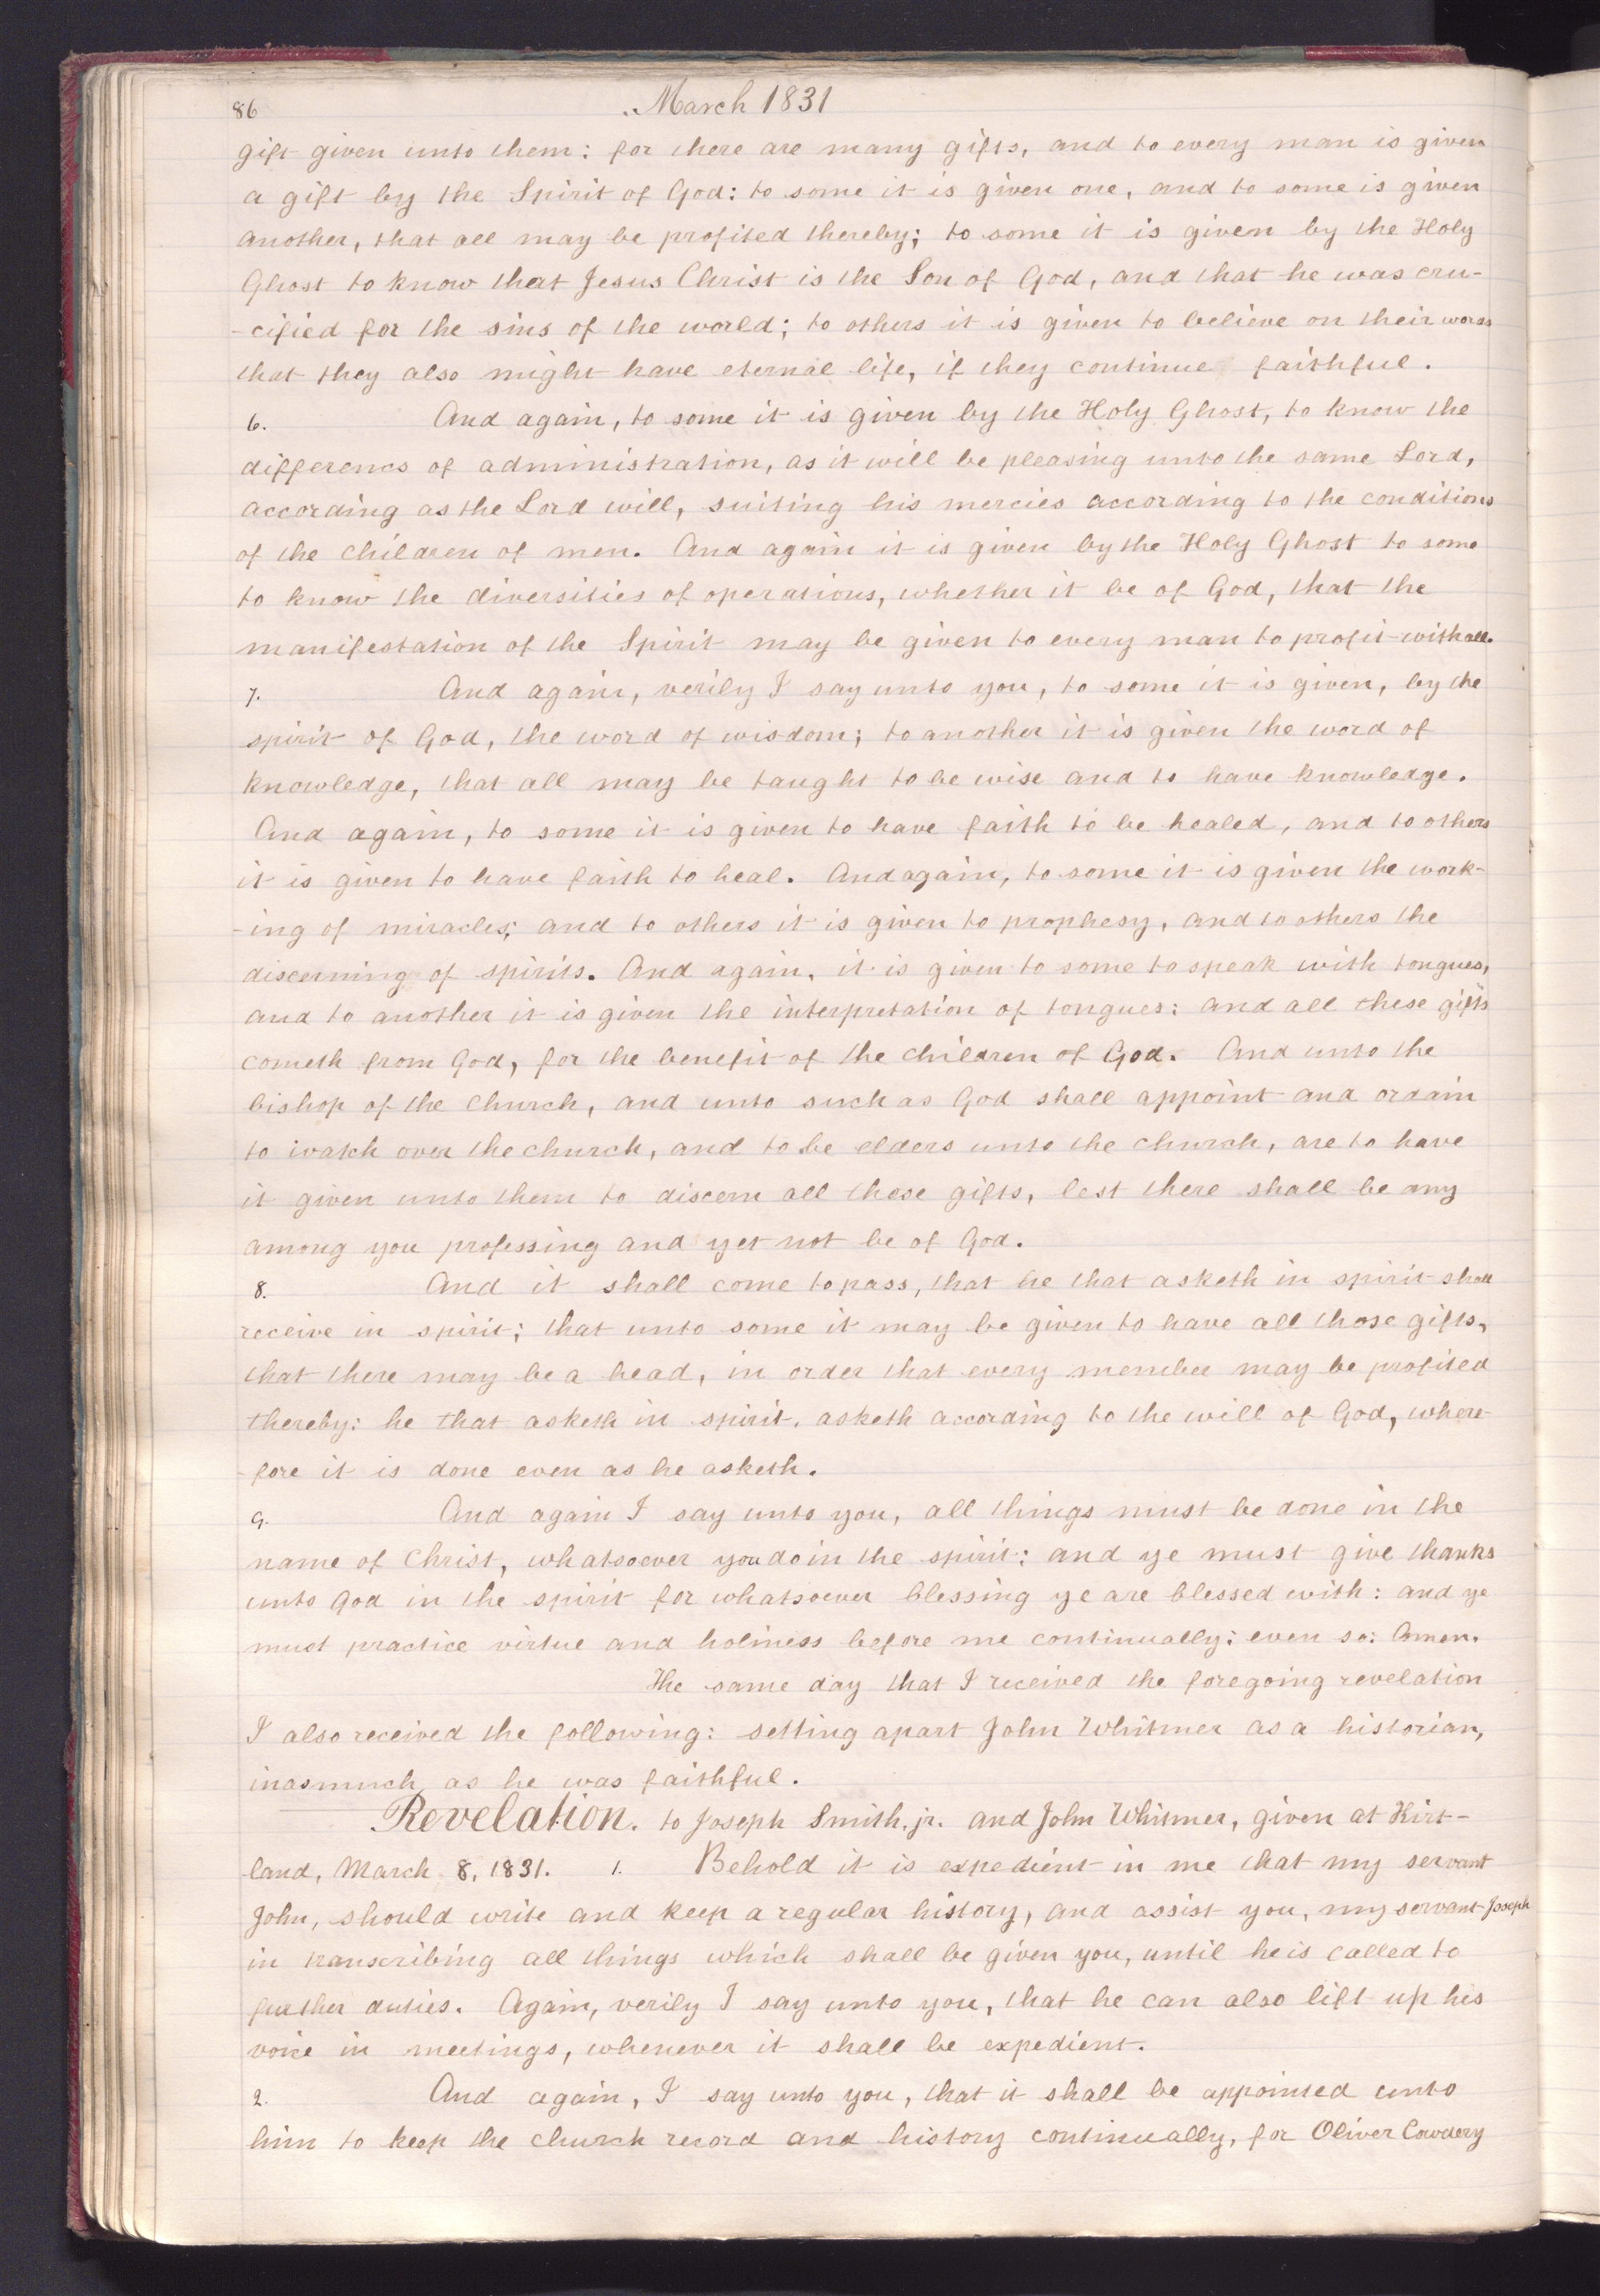 86
March 1831
gift given unto them: for there are many gifts, and to every man is given
a gift by the Spirit of God: to some it is given one, and to some is given
another, that all may be profited thereby; to some it is given by the Holy
Ghost to know that Jesus Christ is the Son of God, and that he was cru-
-cified for the sins of the world; to others it is given to believe on their words
that they also might have eternal life, if they continue faithful.
6. And again, to some it is given by the Holy Ghost, to know the
differencs of administration, as it will be pleasing unto the same Lord,
according as the Lord will, suiting his mercies according to the conditions
of the children of men. And again it is given by the Holy Ghost to some
to know the diversities of operations, whether it be of God, that the
manifestation of the Spirit may be given to every man to profit withall.
7. And again, verily I say unto you, to some it is given, by the
spirit of God, the word of wisdom; to another it is given the word of
knowledge, that all may be taught to be wise and to have knowledge.
And again, to some it is given to have faith to be healed, and to others
it is given to have faith to heal. And again, to some it is given the work-
-ing of miracles; and to others it is given to prophesy, and to others the
discerning of spirits. And again, it is given to some to speak with tongues,
and to another it is given the interpretation of tongues: and all these gifts
cometh from God, for the benefit of the children of God. And unto the
bishop of the church, and unto such as God shall appoint and ordain
to watch over the church, and to be elders unto the church, are to have
it given unto them to discern all those gifts, lest there shall be any
among you professing and yet not be of God.
8. And it shall come to pass, that he that asketh in spirit shall
receive in spirit; that unto some it may be given to have all those gifts,
that there may be a head, in order that every member may be profited
thereby: he that asketh in spirit, asketh according to the will of God, where-
-fore it is done even as he asketh.
9. And again I say unto you, all things must be done in the
name of Christ, whatsoever you do in the spirit; and ye must give thanks
unto God in the spirit for whatsoever blessing ye are blessed with: and ye
must practice virtue and holiness before me continually; even so: Amen.
The same day that I received the foregoing revelation
I also received the following: setting apart John Whitmer as a historian,
inasmuch as he was faithful.
Revelation. to Joseph Smith, jr. and John Whitmer, given at Kirt-
land, March 8, 1831. 1. Behold it is expedient in me that my servant
John, should write and keep a regular history, and assist you, my servant Joseph
in transcribing all things which shall be given you, until he is called to
further duties. Again, verily I say unto you, that he can also lift up his
voice in meetings, whenever it shall be expedient.
2. And again, I say unto you, that it shall be appointed unto
him to keep the church record and history continually, for Oliver Cowdery